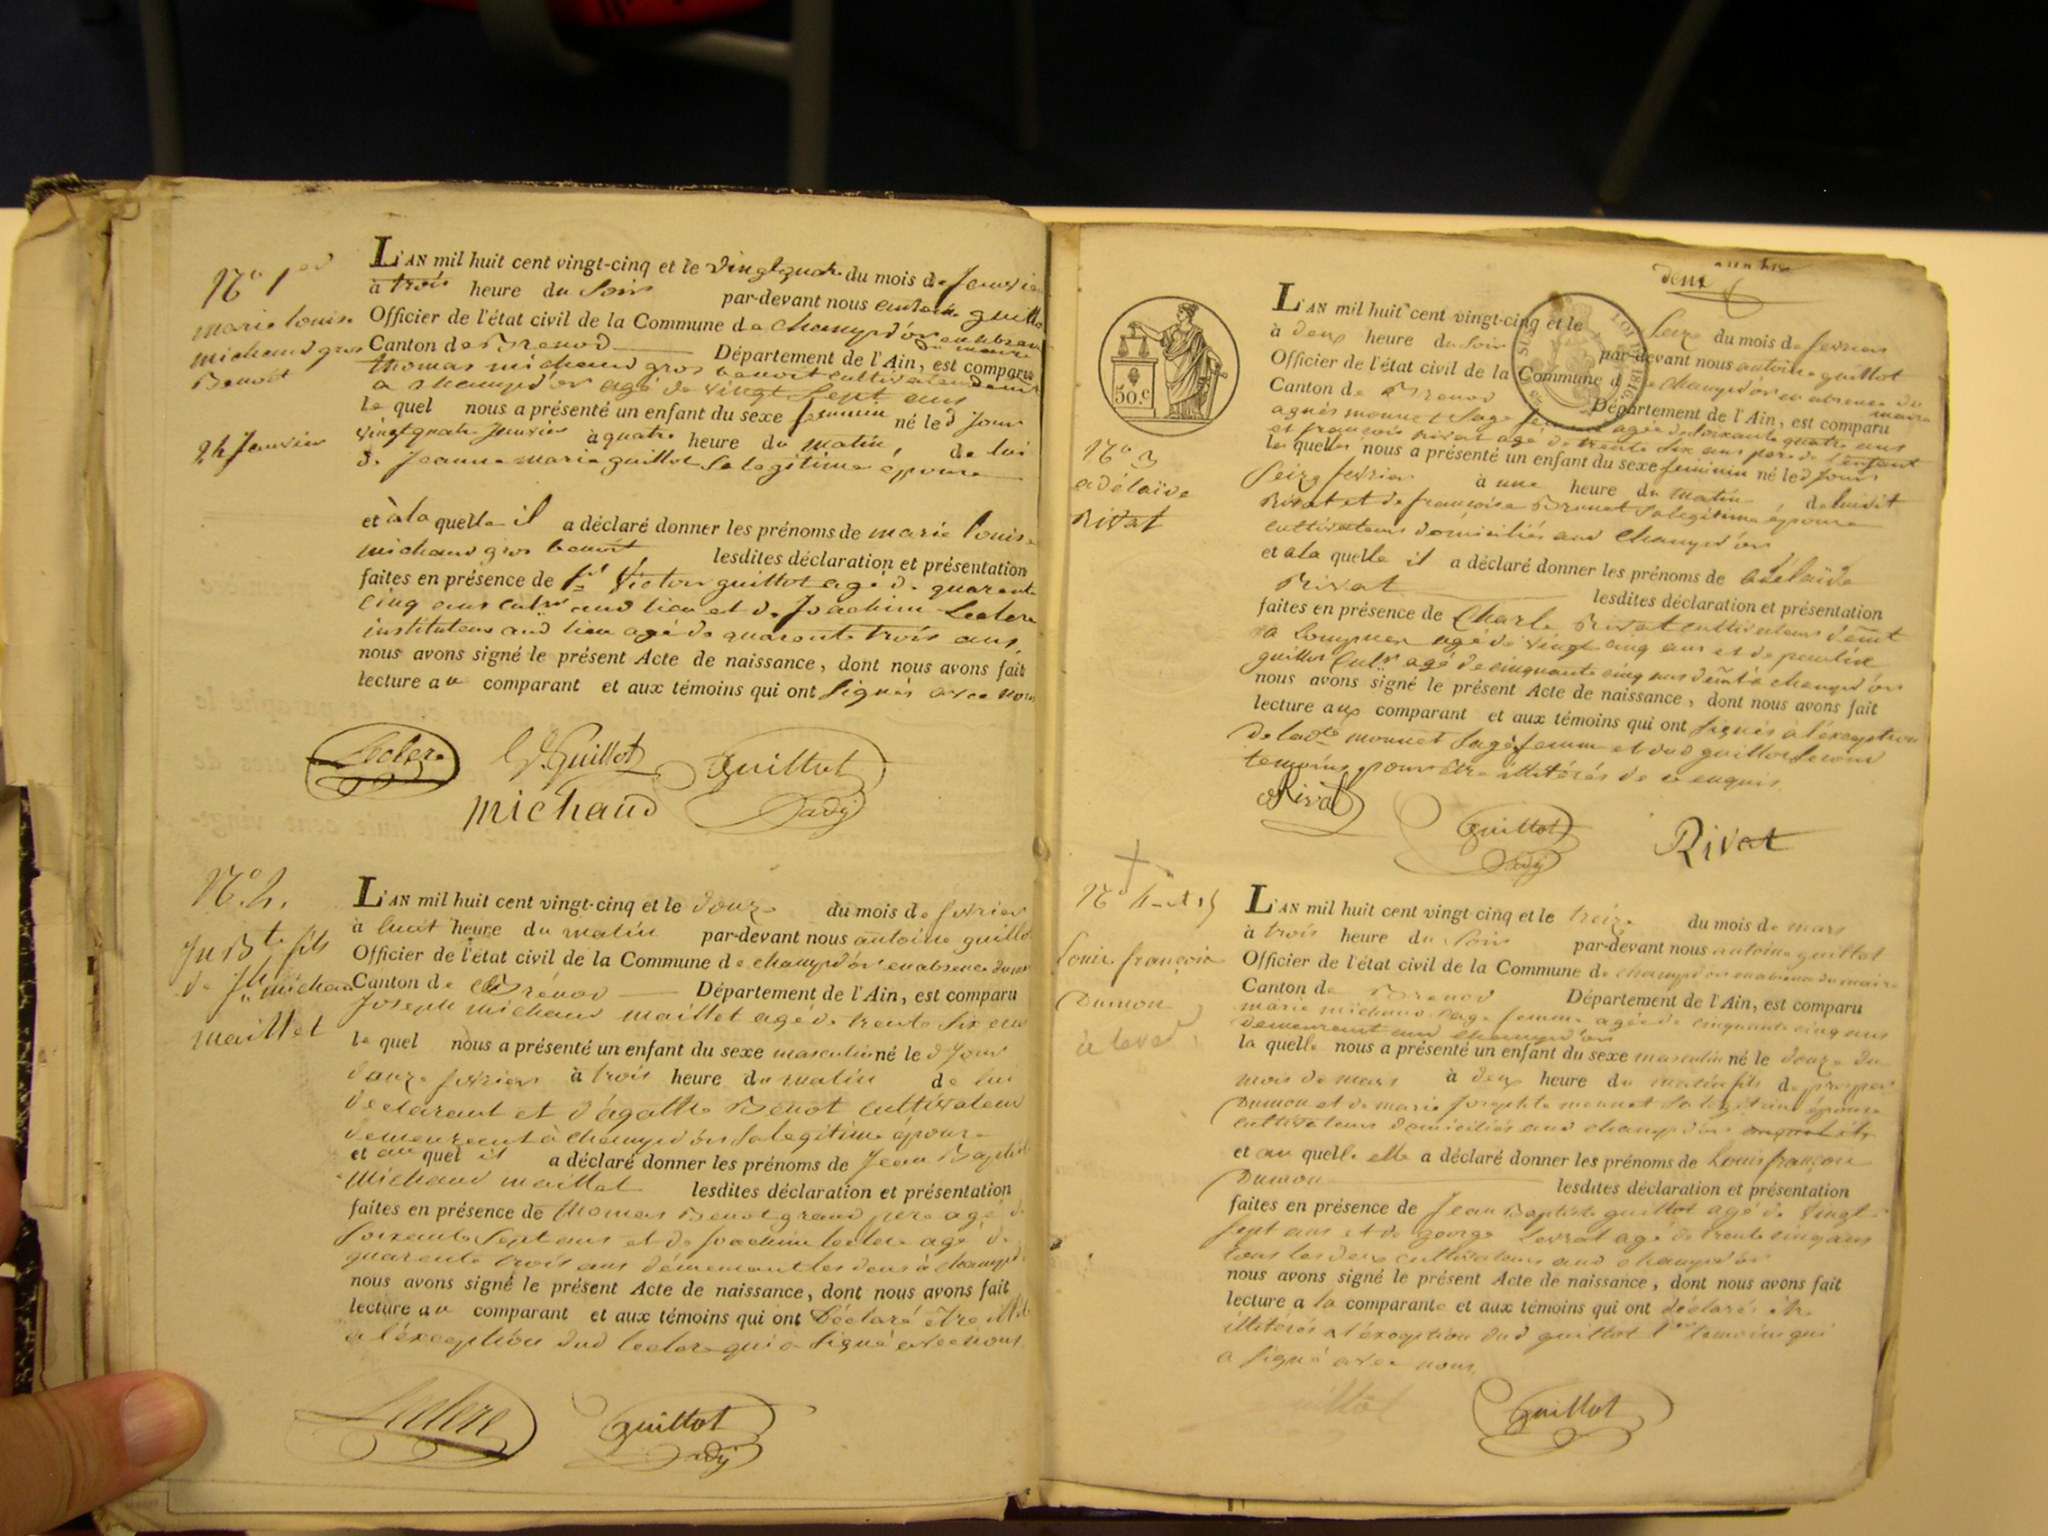 N° 1er
marie louise
michaud gros
Benoit
24 Janvier
L'AN mil huit cent vingt-cinq et le vingtquatre du mois de Janvier
à trois heure du soir par-devant nous antoine guillot
Officier de l'état civil de la Commune de champd'or en absence
du maire
Canton de Brenod Département de l'Ain, est comparu
thomas michaud gros benoit cultivateur demt
a champd'or agé de vingt sept ans
le quel nous a présenté un enfant du sexe feminin né led jour
vingtquatre Janvier à quatre heure du matin, de lui
& de Jeanne marie guillot sa legitime epouse
et à la quelle il a déclaré donner les prénoms de marie louise
michaud gros benoit lesdites déclaration et présentation
faites en présence de Victor guillot agé de quarante
cinq ans cultr aud lieu et de Joachim Leclere
instituteur aud lieu agé de quarante trois ans,
nous avons signé le présent Acte de naissance, dont nous avons fait
lecture au comparant et aux témoins qui ont signés avec nous
Leclere Guillot Guillot
michaud adj
N° 2.
Jn Bte fils
de Jh michaud
maillet
L'AN mil huit cent vingt-cinq et le douze du mois de fevrier
à huit heure du matin par-devant nous antoine guillot
Officier de l'état civil de la Commune de champd'or en absence du maire
Canton de Brénod Département de l'Ain, est comparu
Joseph michaud maillet agé de trente six ans
le quel nous a présenté un enfant du sexe masculin né le d jour
douze fevrier à trois heure du matin de lui
declarant et d'agathe Benot cultivateur
demeurant à champd'or sa legitime épouse
et au quel il a déclaré donner les prénoms de Jean Baptiste
Michaud maillet lesdites déclaration et présentation
faites en présence de thomas Benot grand pere agé de
soixante sept ans et de Joachim leclere agé de
quarante trois ans demeurant les deux à champd'or
nous avons signé le présent Acte de naissance, dont nous avons fait
lecture au comparant et aux témoins qui ont Déclaré être
a l'exception dud leclere qui a signé avec nous
Leclere Guillot
adj
deux
50.c
N° 3
adélaïde
Rivat
L'AN mil huit cent vingt-cinq et le seize du mois de fevrier
à deux heure du soir par-devant nous antoine guillot
Officier de l'état civil de la Commune de champd'or en absence du
maire
Canton de Brenod Département de l'Ain, est comparu
agnès monnet sage femme agée de soixante quatre ans
et françois Rivat agé de trente six ans pere de l'enfant
les quelles nous a présenté un enfant du sexe feminin né led jour
seize fevrier à une heure du matin dudit
Rivat et de françoise Brunet sa legitime épouse
cultivateurs domiciliés aud champd'or
et a la quelle il a déclaré donner les prénoms de adelaïde
Rivat lesdites déclaration et présentation
faites en présence de Charle Rivat cultivateur demt
agé de vingt cinq ans et de
guillot cultr agé de cinquante cinq ans demt à champd'or
nous avons signé le présent Acte de naissance, dont nous avons fait
lecture aux comparant et aux témoins qui ont signés à l'exception
de lad monnet sage femme et dud guillot second
temoins pour être illitérés de ce enquis
Rivat Guillot Rivat
adj
N° 4
Louis françois
Dumon
L'AN mil huit cent vingt-cinq et le treize du mois de mars
à trois heure du soir par-devant nous antoine guillot
Officier de l'état civil de la Commune de champd'or en absence du maire
Canton de Brenod Département de l'Ain, est comparu
marie michaud sage femme agée de cinquante cinq ans
demeurant aud champd'or
la quelle nous a présenté un enfant du sexe masculin né le douze du
mois de mars à deux heure du matin fils de prosper
Dumon et de marie Josephte monnet sa legitime épouse
cultivateurs domiciliés aud champd'or
et au quelle elle a déclaré donner les prénoms de Louis françois
Dumon lesdites déclaration et présentation
faites en présence de Jean Baptiste guillot agé de vingt
sept ans et de george Levrat agé de trente cinq ans
tous les deux cultivateurs aud champd'or
nous avons signé le présent Acte de naissance, dont nous avons fait
lecture a la comparante et aux témoins qui ont déclarés être
illitérés a l'exception dud guillot 1er temoins qui
a signé avec nous.
Guillot